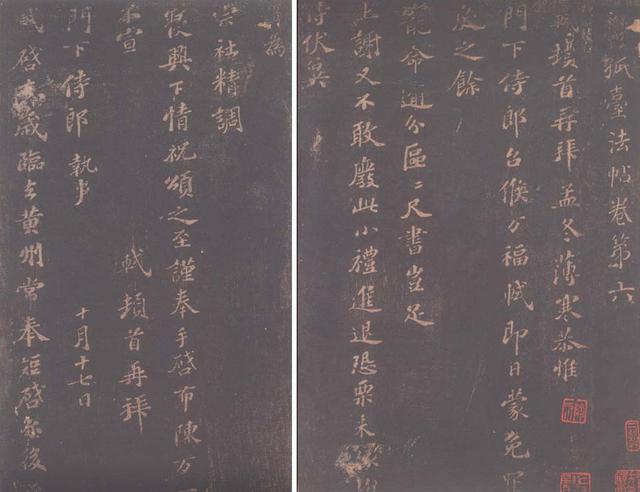 孤臺法帖卷第六
頓首再拜孟冬薄寒恭惟
門下侍郎台候万福軾即日蒙免罪
戾之餘
寵命逾分區〻尺書豈足
上謝又不敢廢此小禮進退恐栗未
侍伏冀
為
宗社精調
寢興下情祝頌之至謹奉手啓布陳万一
不宣 軾頓首再拜
門下侍郎 執事 十月十七日
軾啓去歲臨去黄州常奉短啓尔後